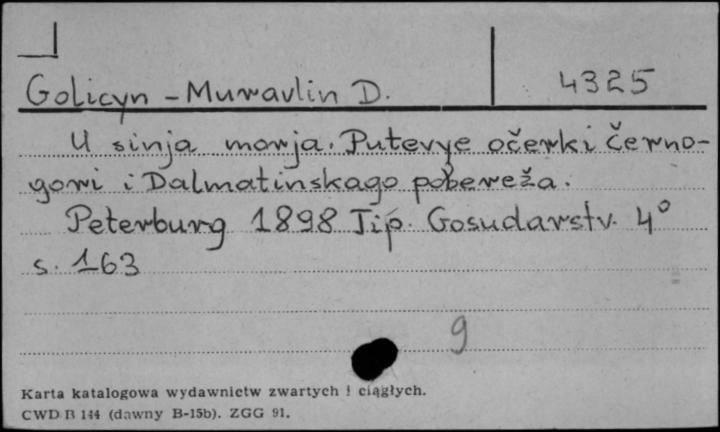 Golicyn - Muravlin D. 4325
U sinja morja. Putevye očerki Černo-
gori i Dalmatinskago pobereža.
Peterburg 1898 Tip. Gosudarstv. 4°
s. 163
9
Karta katalogowa wydawnictw zwartych i ciągłych.
CWD B 144 (dawny B-15b). ZGG 91.